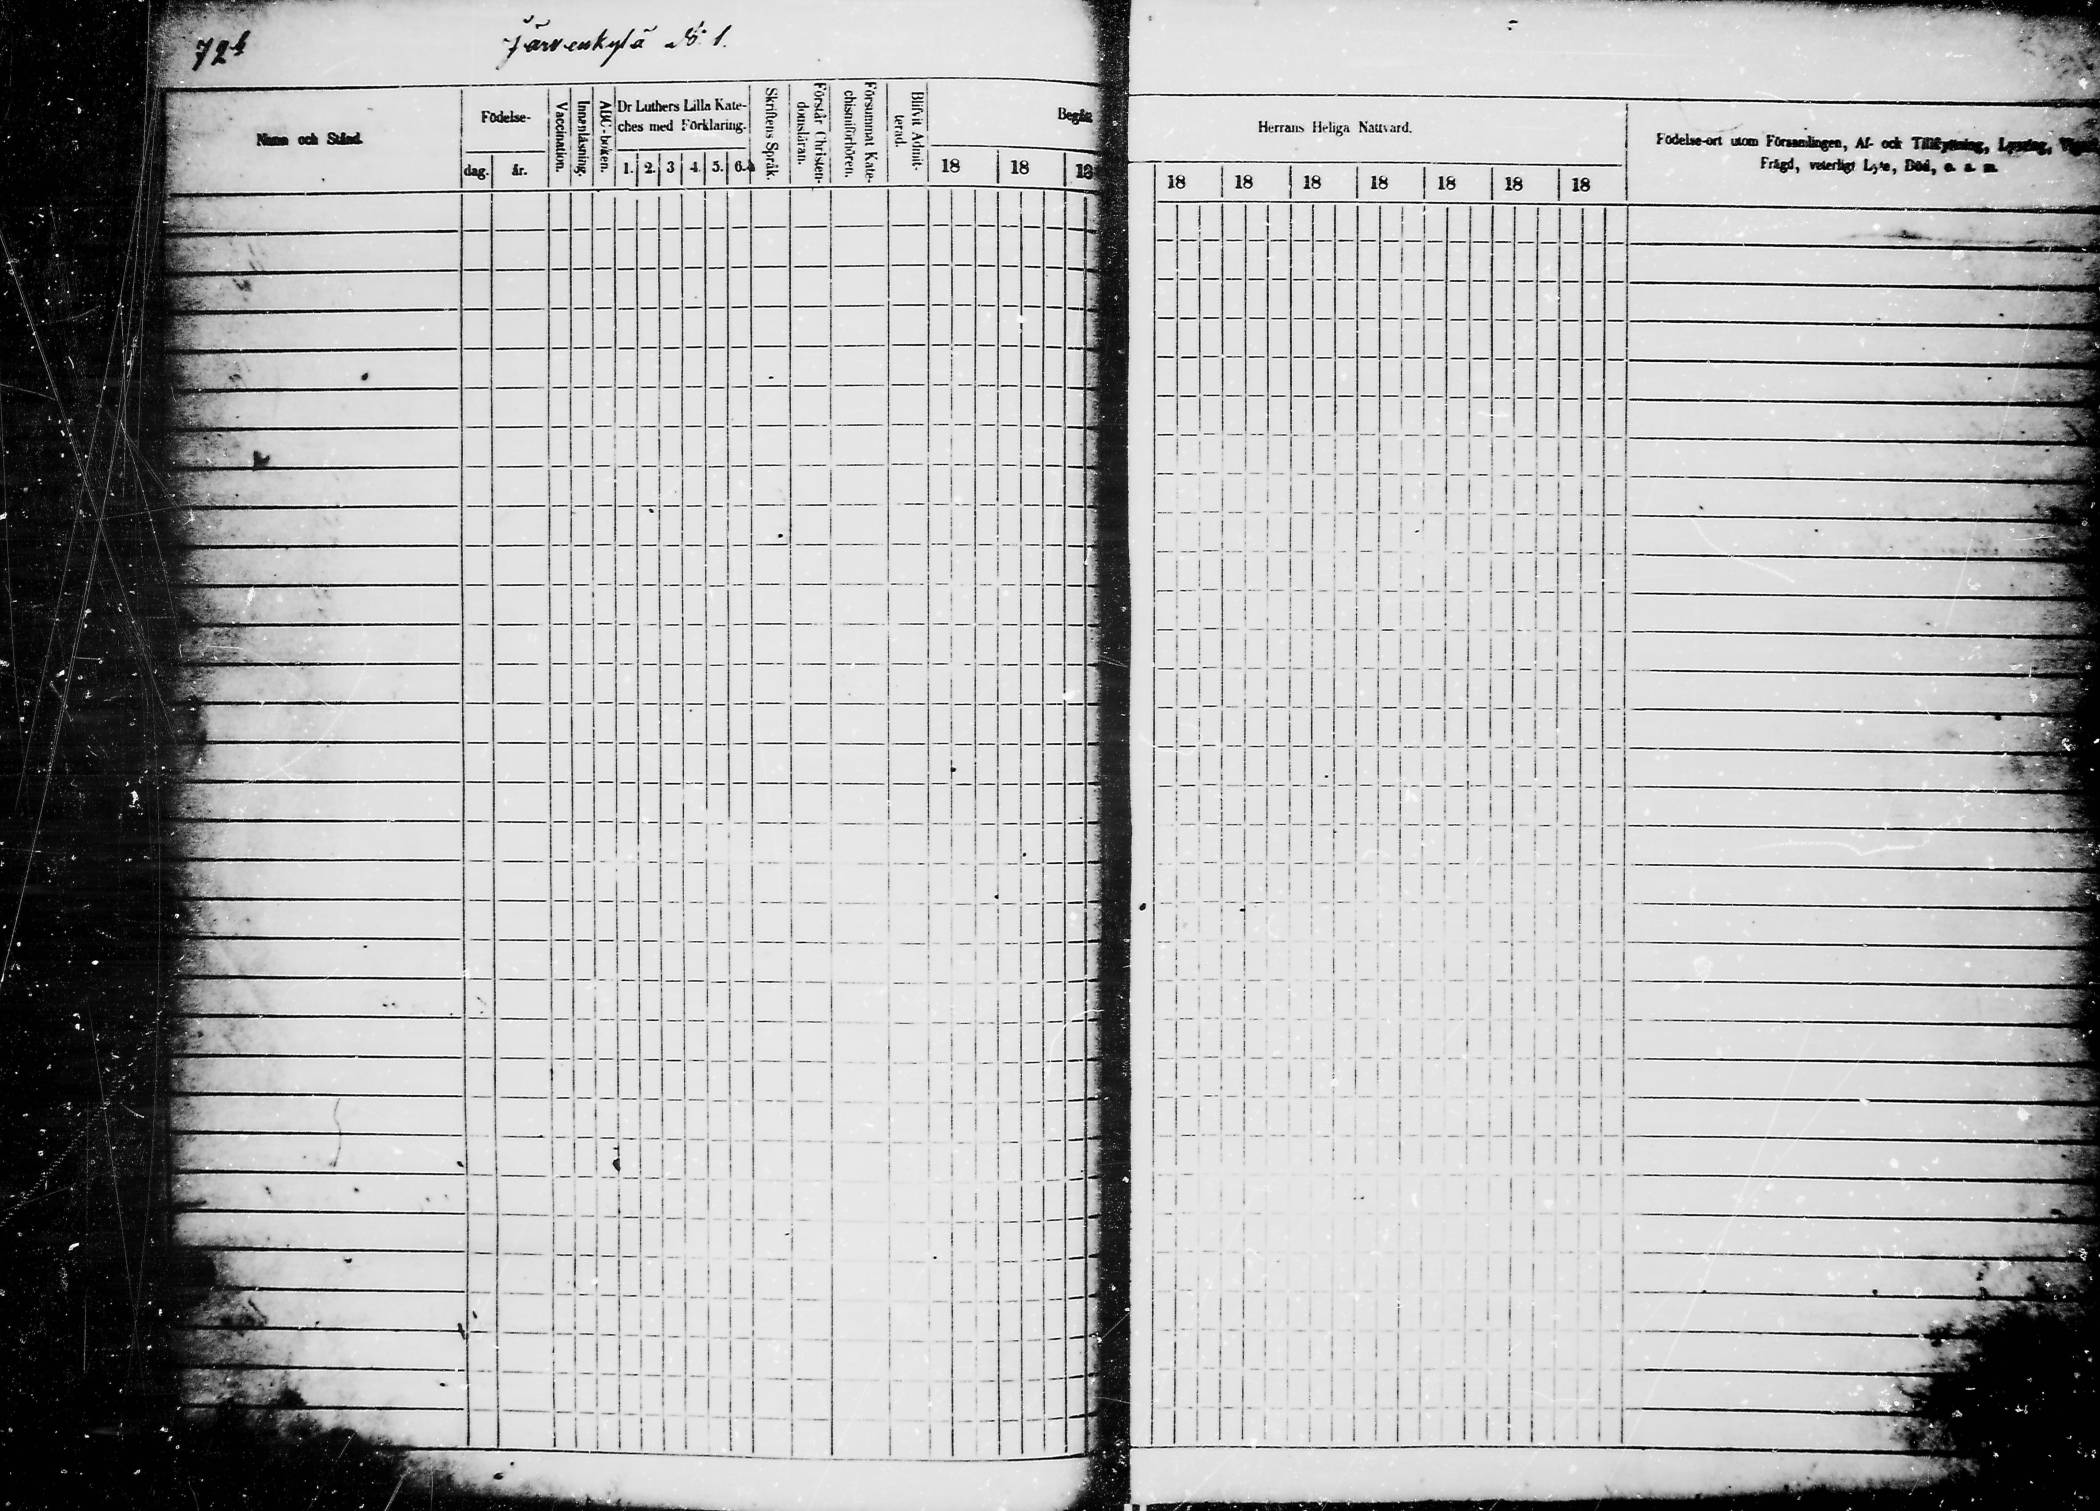 72b
Järvenkylä No 1.
Namn och Stånd.
Födelse-
dag. år.
Vaccination.
Innanläsning.
ABC-boken.
Dr Luthers Lilla Kate-
ches med Förklaring.
1. 2. 3 4. 5. 6.
Skriftens Språk.
Förstår Christen-
domsläran.
Försummat Kate-
chismiförhören.
Blifvit Admit-
terad.
Begått
18 18 18
Herrans Heliga Nattvard.
18 18 18 18 18 18 18
Födelse-ort utom Församlingen, Af- och Tillflyttning, Lysning,
Frägd, veterligt Lyte, Död, o. s. m.